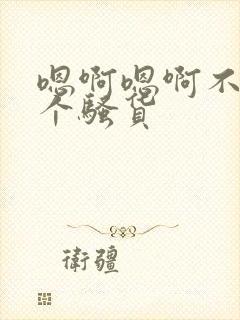 嗯啊嗯啊不
个骚货
衛疆